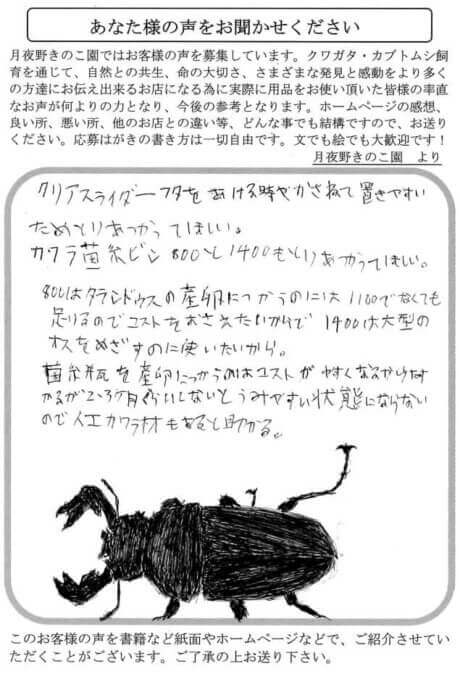 あなた様の声をお聞かせください
月夜野きのこ園ではお客様の声を募集しています。クワガタ・カブトムシ飼
育を通じて、自然との共生、命の大切さ、さまざまな発見と感動をより多く
の方達にお伝え出来るお店になる為に実際に用品をお使い頂いた皆様の率直
なお声が何よりの力となり、今後の参考となります。ホームページの感想、
良い所、悪い所、他のお店との違い等、どんな事でも結構ですので、お送り
ください。応募はがきの書き方は一切自由です。文でも絵でも大歓迎です！
月夜野きのこ園　より
クリアスライダーフタをあける時やかさねて置きやすい
ためとりあつかってほしい。
カワラ菌糸ビン800と1400もとりあつかってほしい。
800はタランドゥスの産卵につかうのには1100でなくても
足りるのでコストをおさえたいからで1400は大型の
オスをめざすのに使いたいから。
菌糸瓶を産卵につかうのはコストがやすくなるからなす
かるが2、3ヶ月ぐらいしないとうみやすい状態にならない
ので人工カワラ材もあると助かる。
このお客様の声を書籍など紙面やホームページなどで、ご紹介させてい
ただくことがございます。ご了承の上お送り下さい。